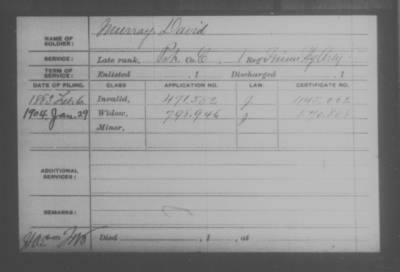 NAME OF SOLDIER: Murray, David
SERVICE: Late rank, Pvt. Co. C, 1 Reg Hy Arty
TERM OF SERVICE: Enlisted , 1 Discharged , 1
DATE OF FILING. CLASS. APPLICATION NO. LAW. CERTIFICATE NO.
1883 Invalid, 471.502 J
1904 Jan. 29 Widow, 798.946 J
Minor,
ADDITIONAL SERVICES:
REMARKS:
Died , 1 , at